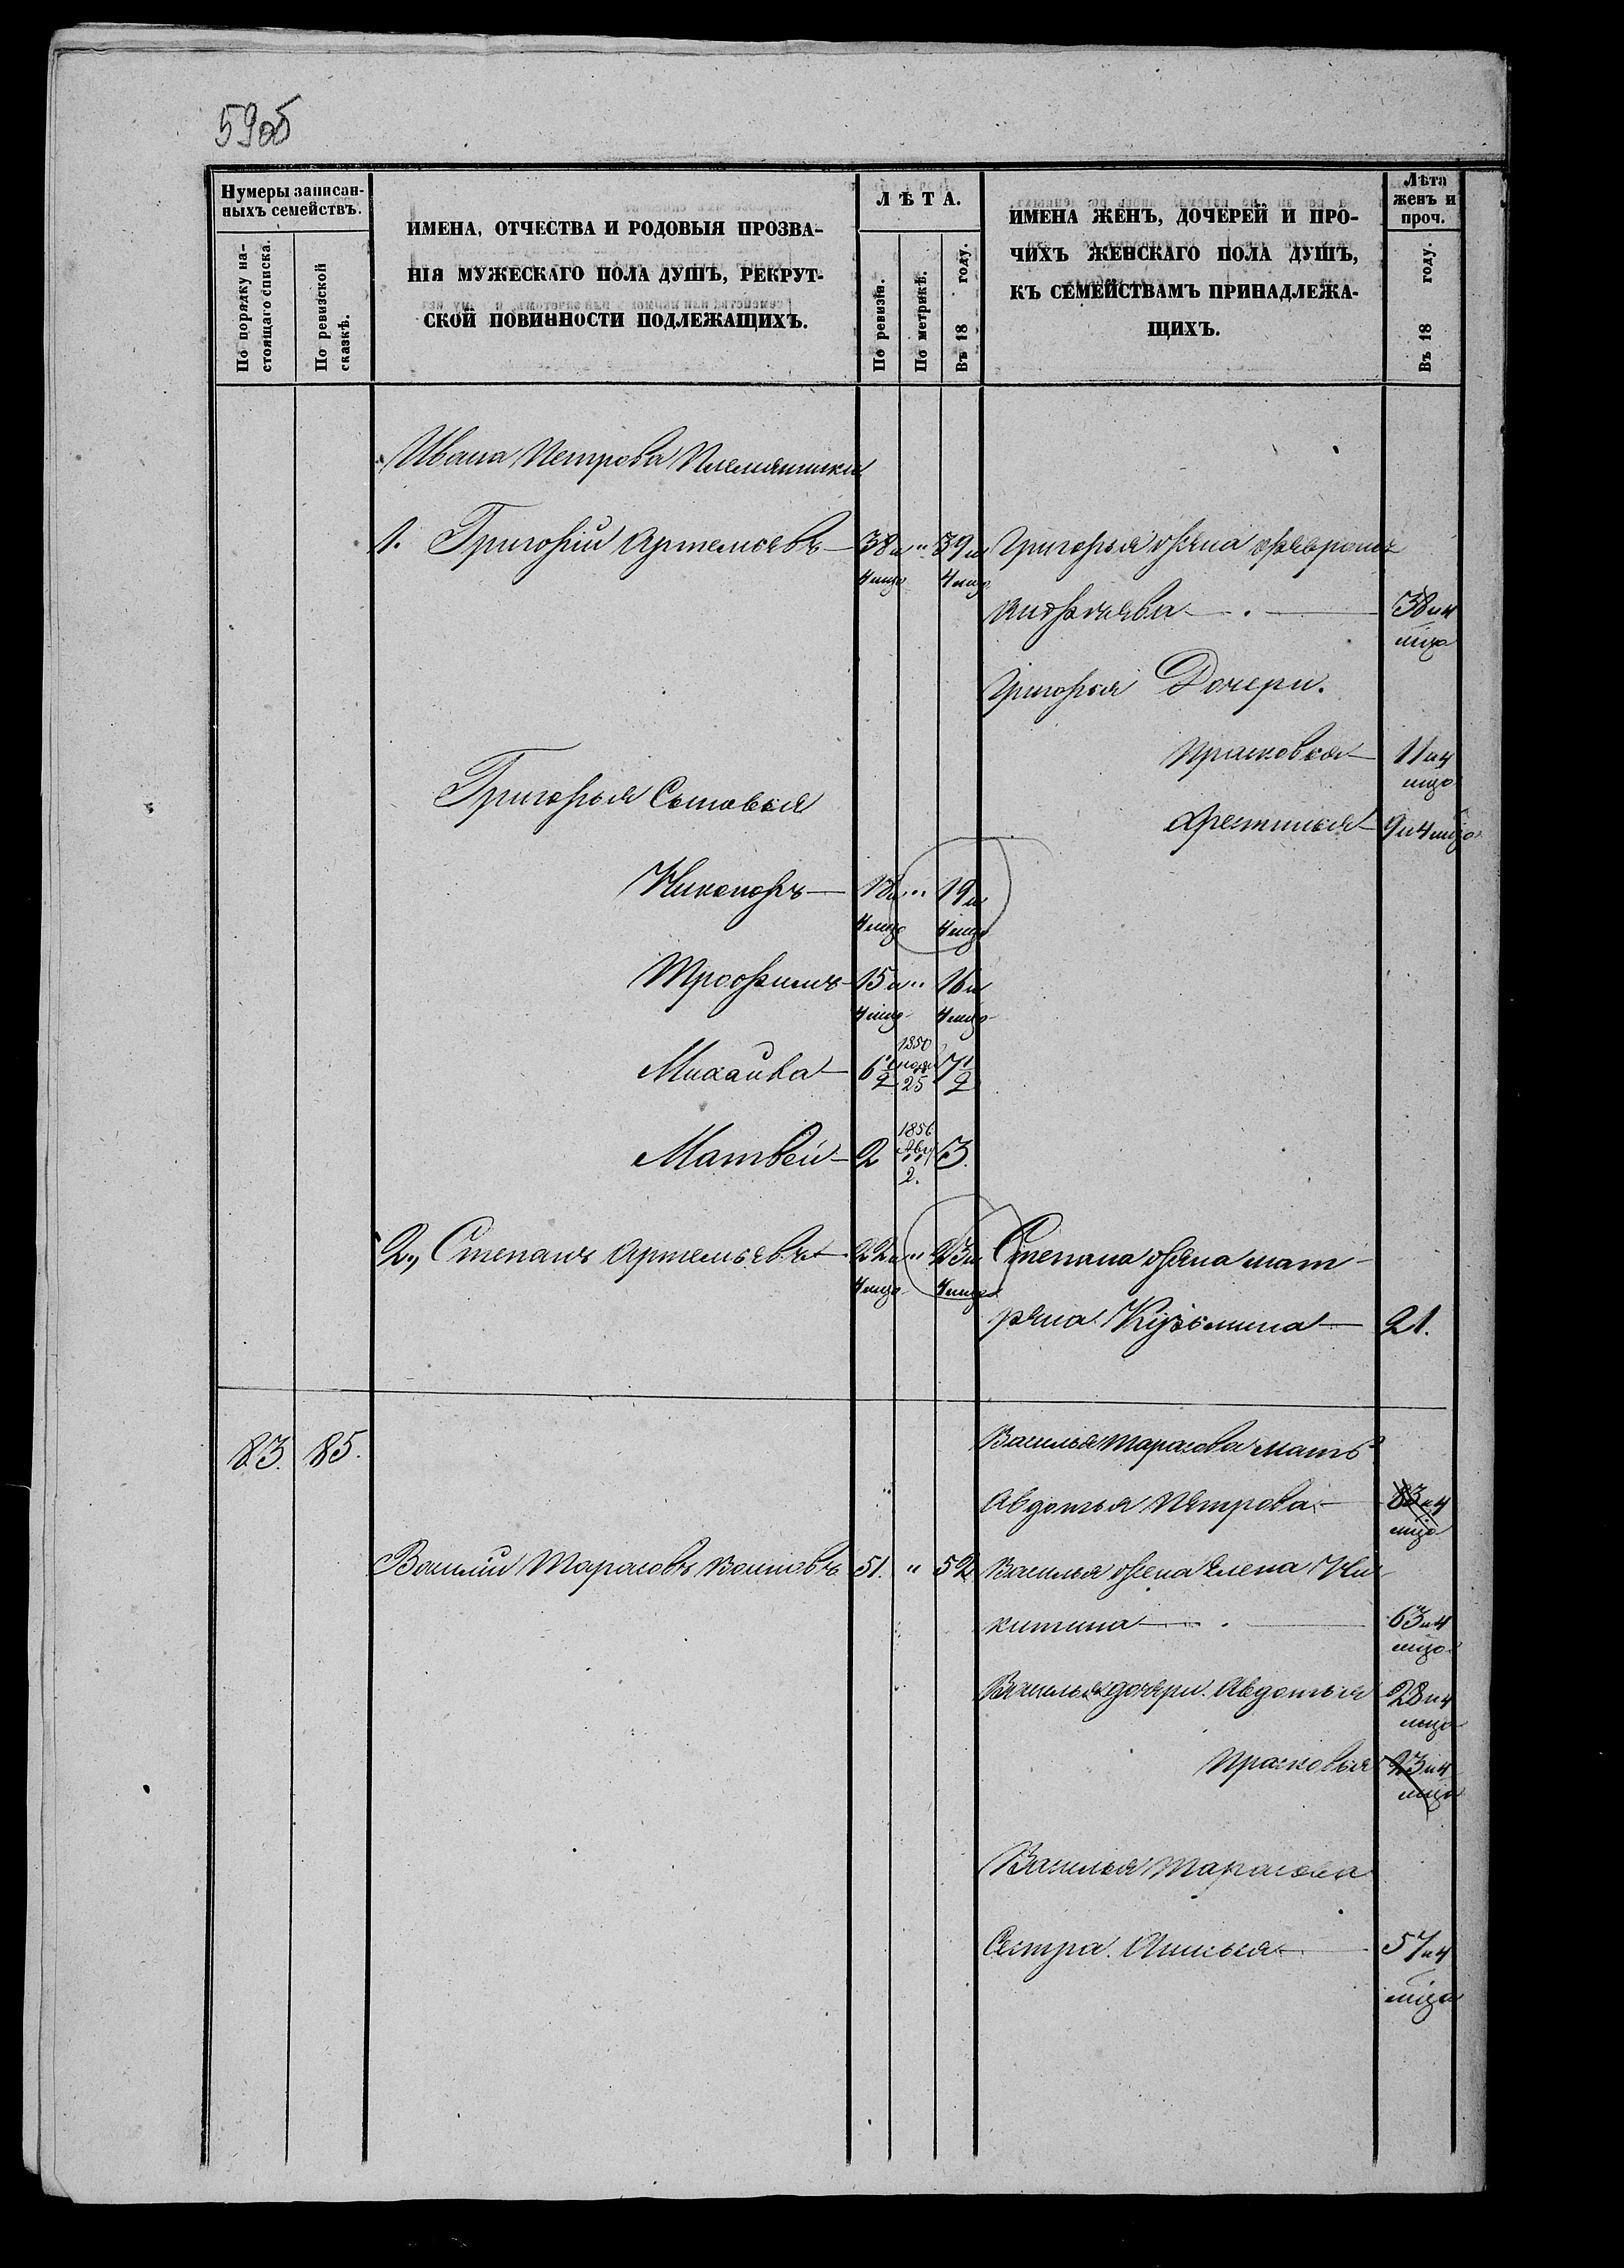 59об
Нумеры записан-
ныхъ семействъ.
По порядку на-
стоящаго списка.
По ревизской
сказкѣ.
ИМЕНА, ОТЧЕСТВА И РОДОВЫЯ ПРОЗВА-
НІЯ МУЖЕСКАГО ПОЛА ДУШЪ, РЕКРУТ-
СКОЙ ПОВИННОСТИ ПОДЛЕЖАЩИХЪ.
ЛѢТА.
По ревизіи.
По метрикѣ.
Въ 18 году.
ИМЕНА ЖЕНЪ, ДОЧЕРЕЙ И ПРО-
ЧИХЪ ЖЕНСКАГО ПОЛА ДУШЪ,
КЪ СЕМЕЙСТВАМЪ ПРИНАДЛЕЖА-
ЩИХЪ.
Лѣта
женъ и
проч.
Въ 18 году.
Ивана Петрова Племянники
1. Григорій Артемьевъ 38 и " 39 и Григорья жена
4 мца 4 мца
38 и 4
мца
Григорья Дочери.
Прасковья 11 и 4
мца
Григорья Сыновья
9 и 4 мца
Никоноръ 18 и " 19 и
4 мца 4 мца
Трофимъ 15 и " 16 и
4 мца 4 мца
Михаила 6 1/2 1850 ноя 25 7 1/2
Матвей 2 1856 Авг 2. 3.
2., Степанъ Артемьевъ 22 и " 23 и Степана жена Мат-
4 мца 4 мца
рена Кузьмина 21.
83. 85. Василья Тарасова мать
Авдотья Петрова 83 и 4
мца
Василій Тарасовъ 51. " 52 Василья жена Елена Ни-
китина 63 и 4
мца
Василья дочери. Авдотья 28 и 4
мца
Прасковья 23 и 4
мца
Василья Тарасова
Сестра. Анисья 57 и 4
мца